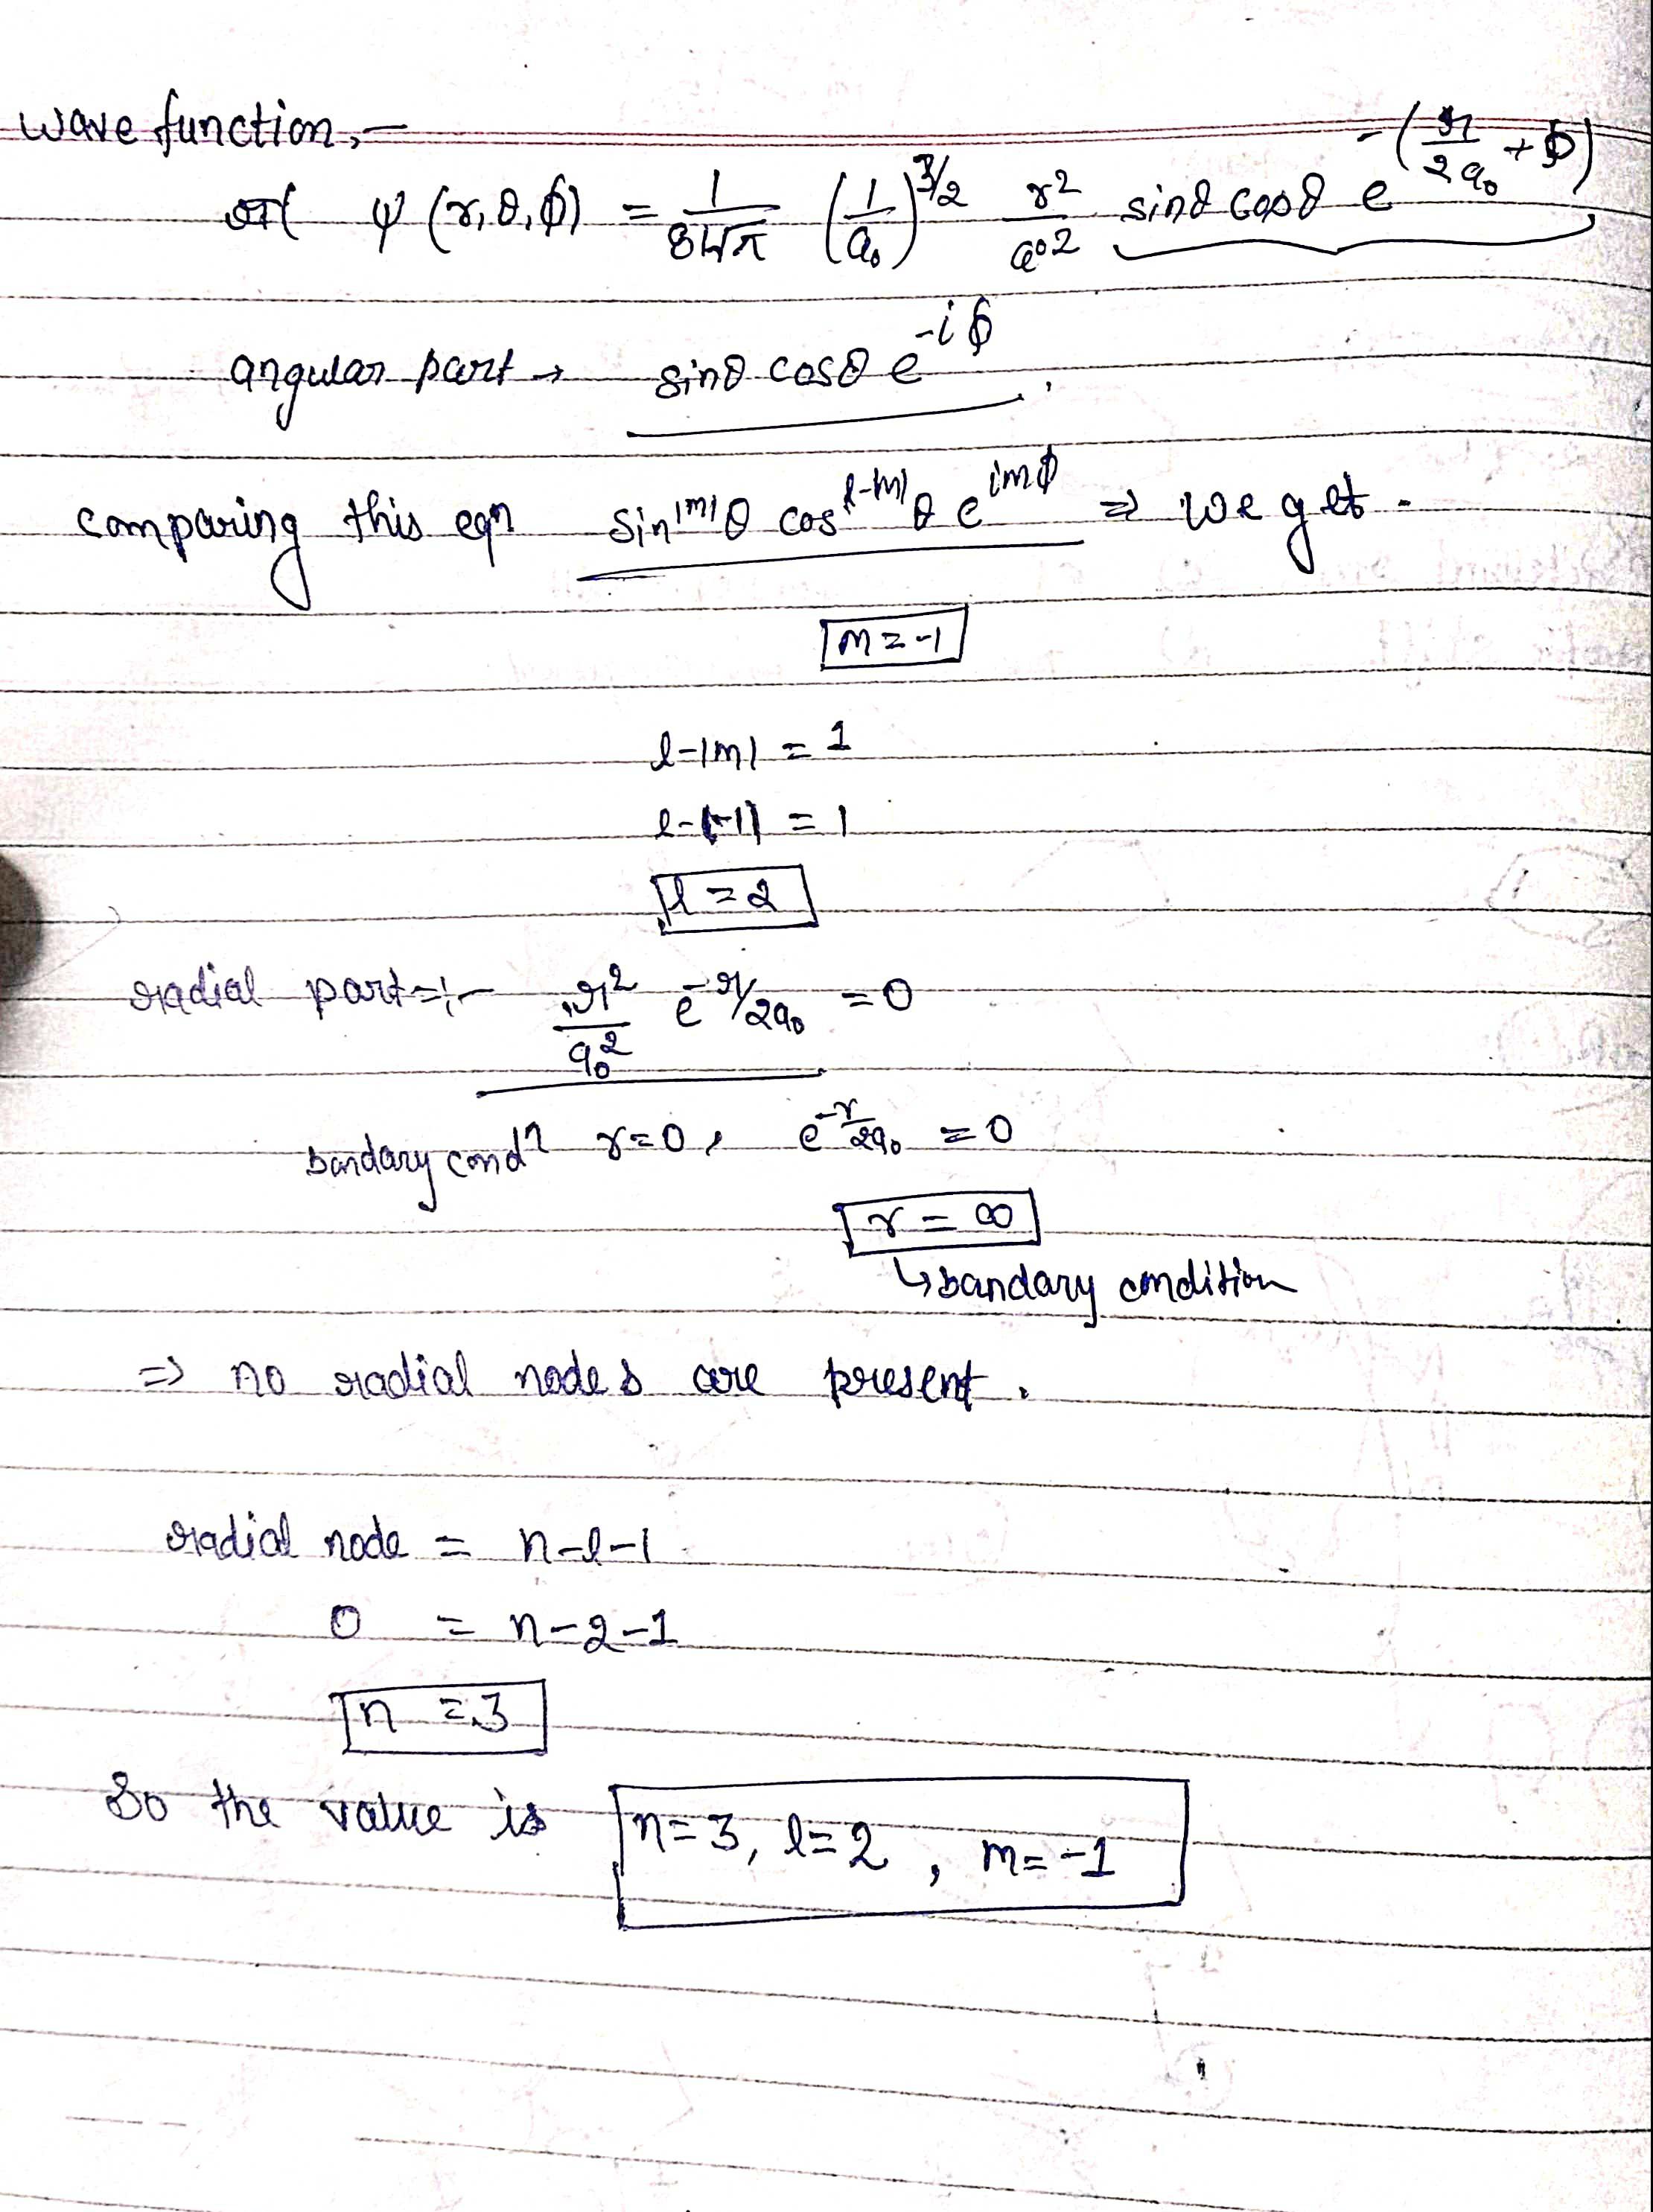 wave function,—
ψ (r, θ, ϕ) = 1/81√π (1/a₀)^3/2 r²/a₀² sinθ cosθ e^-(r/2a₀ + ϕ)
angular part → sinθ cosθ e^-iϕ.
comparing this eqn sin^|m| θ cos^l-|m| θ e^imϕ ⇒ we get -
m = -1
l-|m| = 1
l-|-1| = 1
l = 2
radial part ⇒:- r²/a₀² e^-r/2a₀ = 0
bandary condn r=0, e^-r/2a₀ = 0
r = ∞
↳ bandary condition
⇒ no radial nodes are present.
radial node = n-l-1
0 = n-2-1
n = 3
So the value is n=3, l=2, m=-1